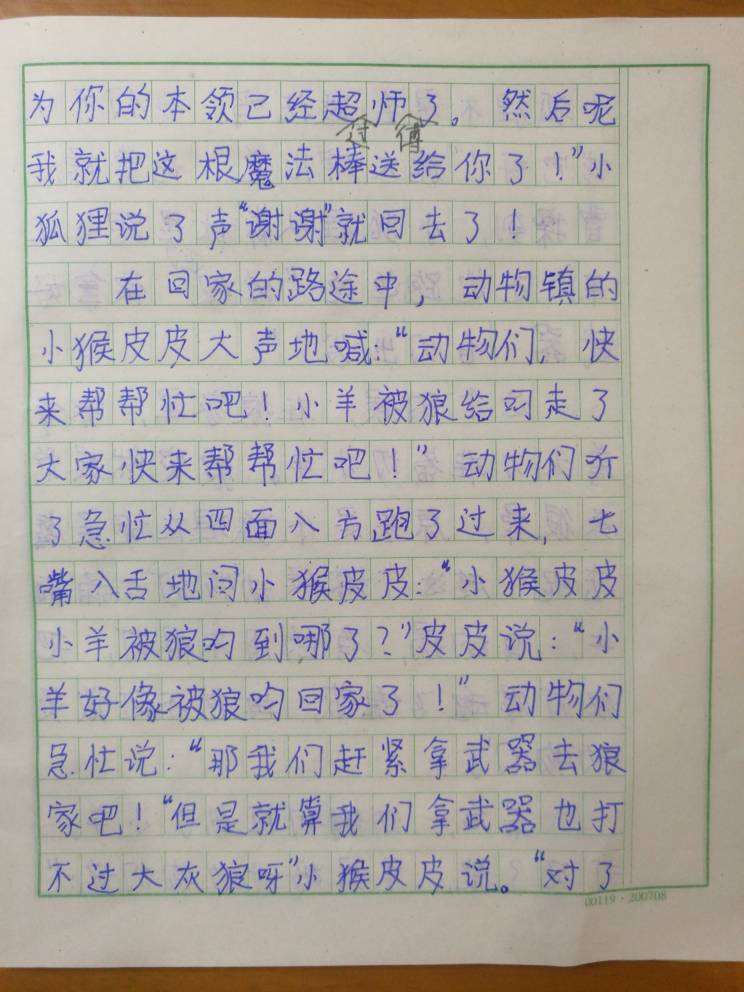 为你的本领已经超师了。然后呢
付傅
我就把这根魔法棒送给你了！”小
狐狸说了声“谢谢”就回去了！
在回家的路途中，动物镇的
小猴皮皮大声地喊：“动物们，快
来帮帮忙吧！小羊被狼给叼走了
大家快来帮帮忙吧！”动物们听
了急忙从四面八方跑了过来，七
嘴八舌地问小猴皮皮：“小猴皮皮
小羊被狼叼到哪了？”皮皮说：“小
羊好像被狼叼回家了！”动物们
急忙说：“那我们赶紧拿武器去狼
家吧！“但是就算我们拿武器也打
不过大灰狼呀”小猴皮皮说。“对了
00119·200708